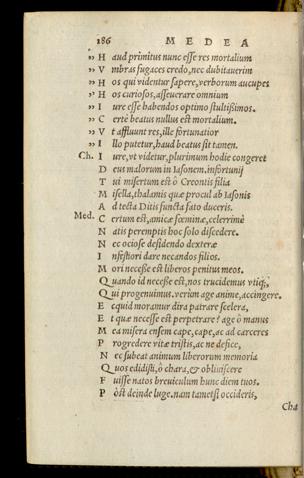 186 MEDEA
„ Haud primitus nunc esse res mortalium
„ Vmbras fugaces credo, nec dubitauerim
„ Hos qui videntur sapere, verborum aucupes
„ Hos curiosos, asseuerare omnium
„ Iure esse habendos optimo stultißimos.
„ Certè beatus nullus est mortalium.
„ Vt affluunt res, ille fortunatior
„ Illo putetur, haud beatus sit tamen.
Ch. Iure, vt videtur, plurimum hodie congeret
Deus malorum in Iasonem. infortunij
Tui misertum est ô Creontis filia
Misella, thalamis quæ procul ab Iasonis
Ad tecta Ditis functa fato duceris.
Med. Certum est, amicæ fœminæ, celerrimè
Natis peremptis hoc solo discedere.
Nec ociose desidendo dexteræ
Infestiori dare necandos filios.
Mori necesse est liberos penitus meos.
Quando id necesse est, nos trucidemus vtiq;,
Qui progenuimus. verùm age anime, accingere.
Ecquid moramur dira patrare scelera,
Et quæ necesse est perpetrare? age ô manus
Mea misera ensem cape, cape, ac ad carceres
Progredere vitæ tristis, ac ne defice,
Nec subeat animum liberorum memoria
Quos edidisti, ô chara, & obliuiscere
Fuisse natos breuiculum hunc diem tuos.
Pòst deinde luge. nam tametsi occideris,
Cha